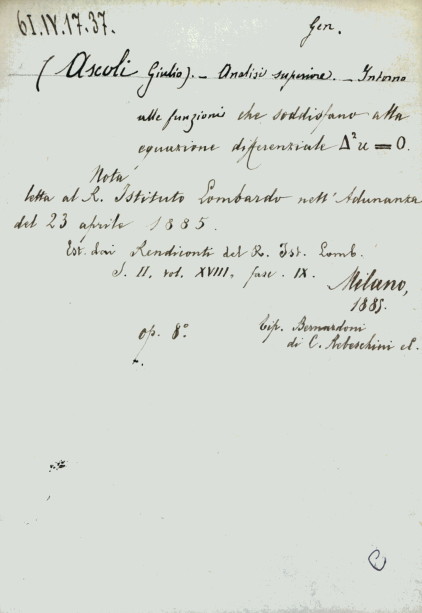 61.IV.17.37.
Gen.
(Ascoli Giulio). - Analisi superiore. - Intorno
alle funzioni che soddisfano alla
equazione differenziale Δ²u = 0.
Nota
letta al R. Istituto Lombardo nell'Adunanza
del 23 aprile 1885.
Est. dai Rendiconti del R. Ist. Lomb.
S. II, vol. XVIII, fasc. IX.
Milano,
1885.
op. 8°
Tip. Bernardoni
di C. Rebeschini e C.